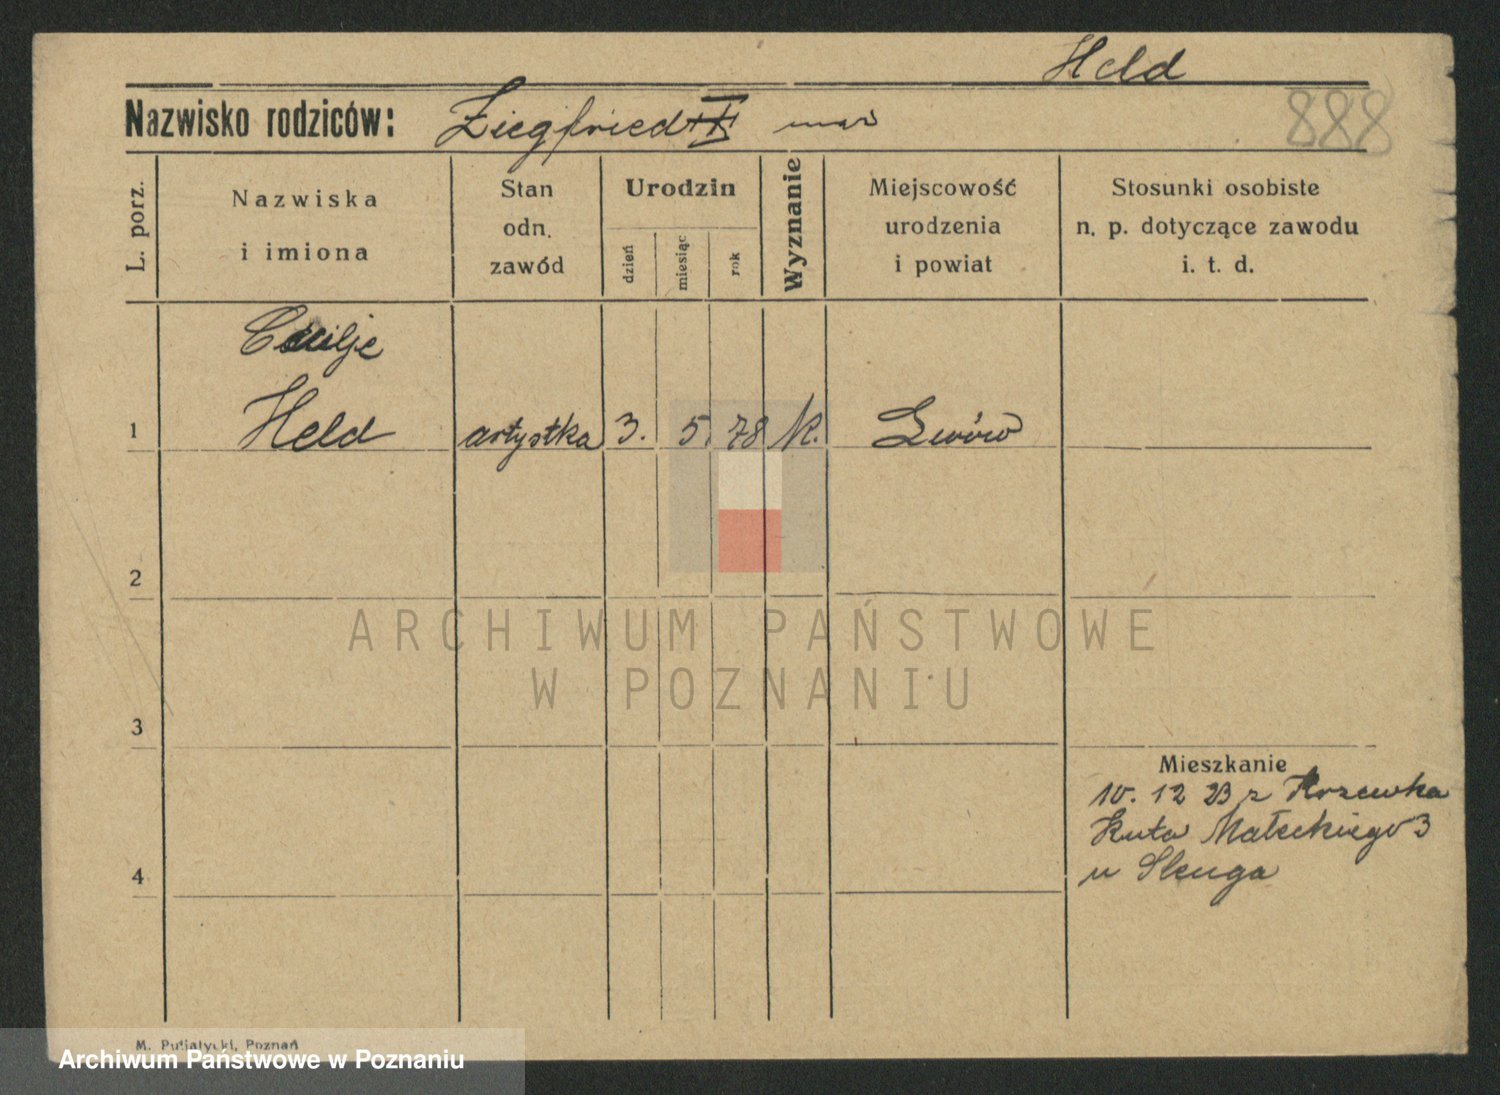 Held
888
Nazwisko rodziców: Ziegfried
L. porz.
Nazwiska
i imiona
Stan
odn.
zawód
Urodzin
dzień
miesiąc
rok
Wyznanie
Miejscowość
urodzenia
i powiat
Stosunki osobiste
n. p. dotyczące zawodu
i. t. d.
Cecilje
1 Held artystka 3. 5. 78 K. Lwów
2
3
4
Mieszkanie
10. 12 23 z
Małeckiego 3
u
ARCHIWUM PAŃSTWOWE
W POZNANIU
M. Putiatycki, Poznań
Archiwum Państwowe w Poznaniu